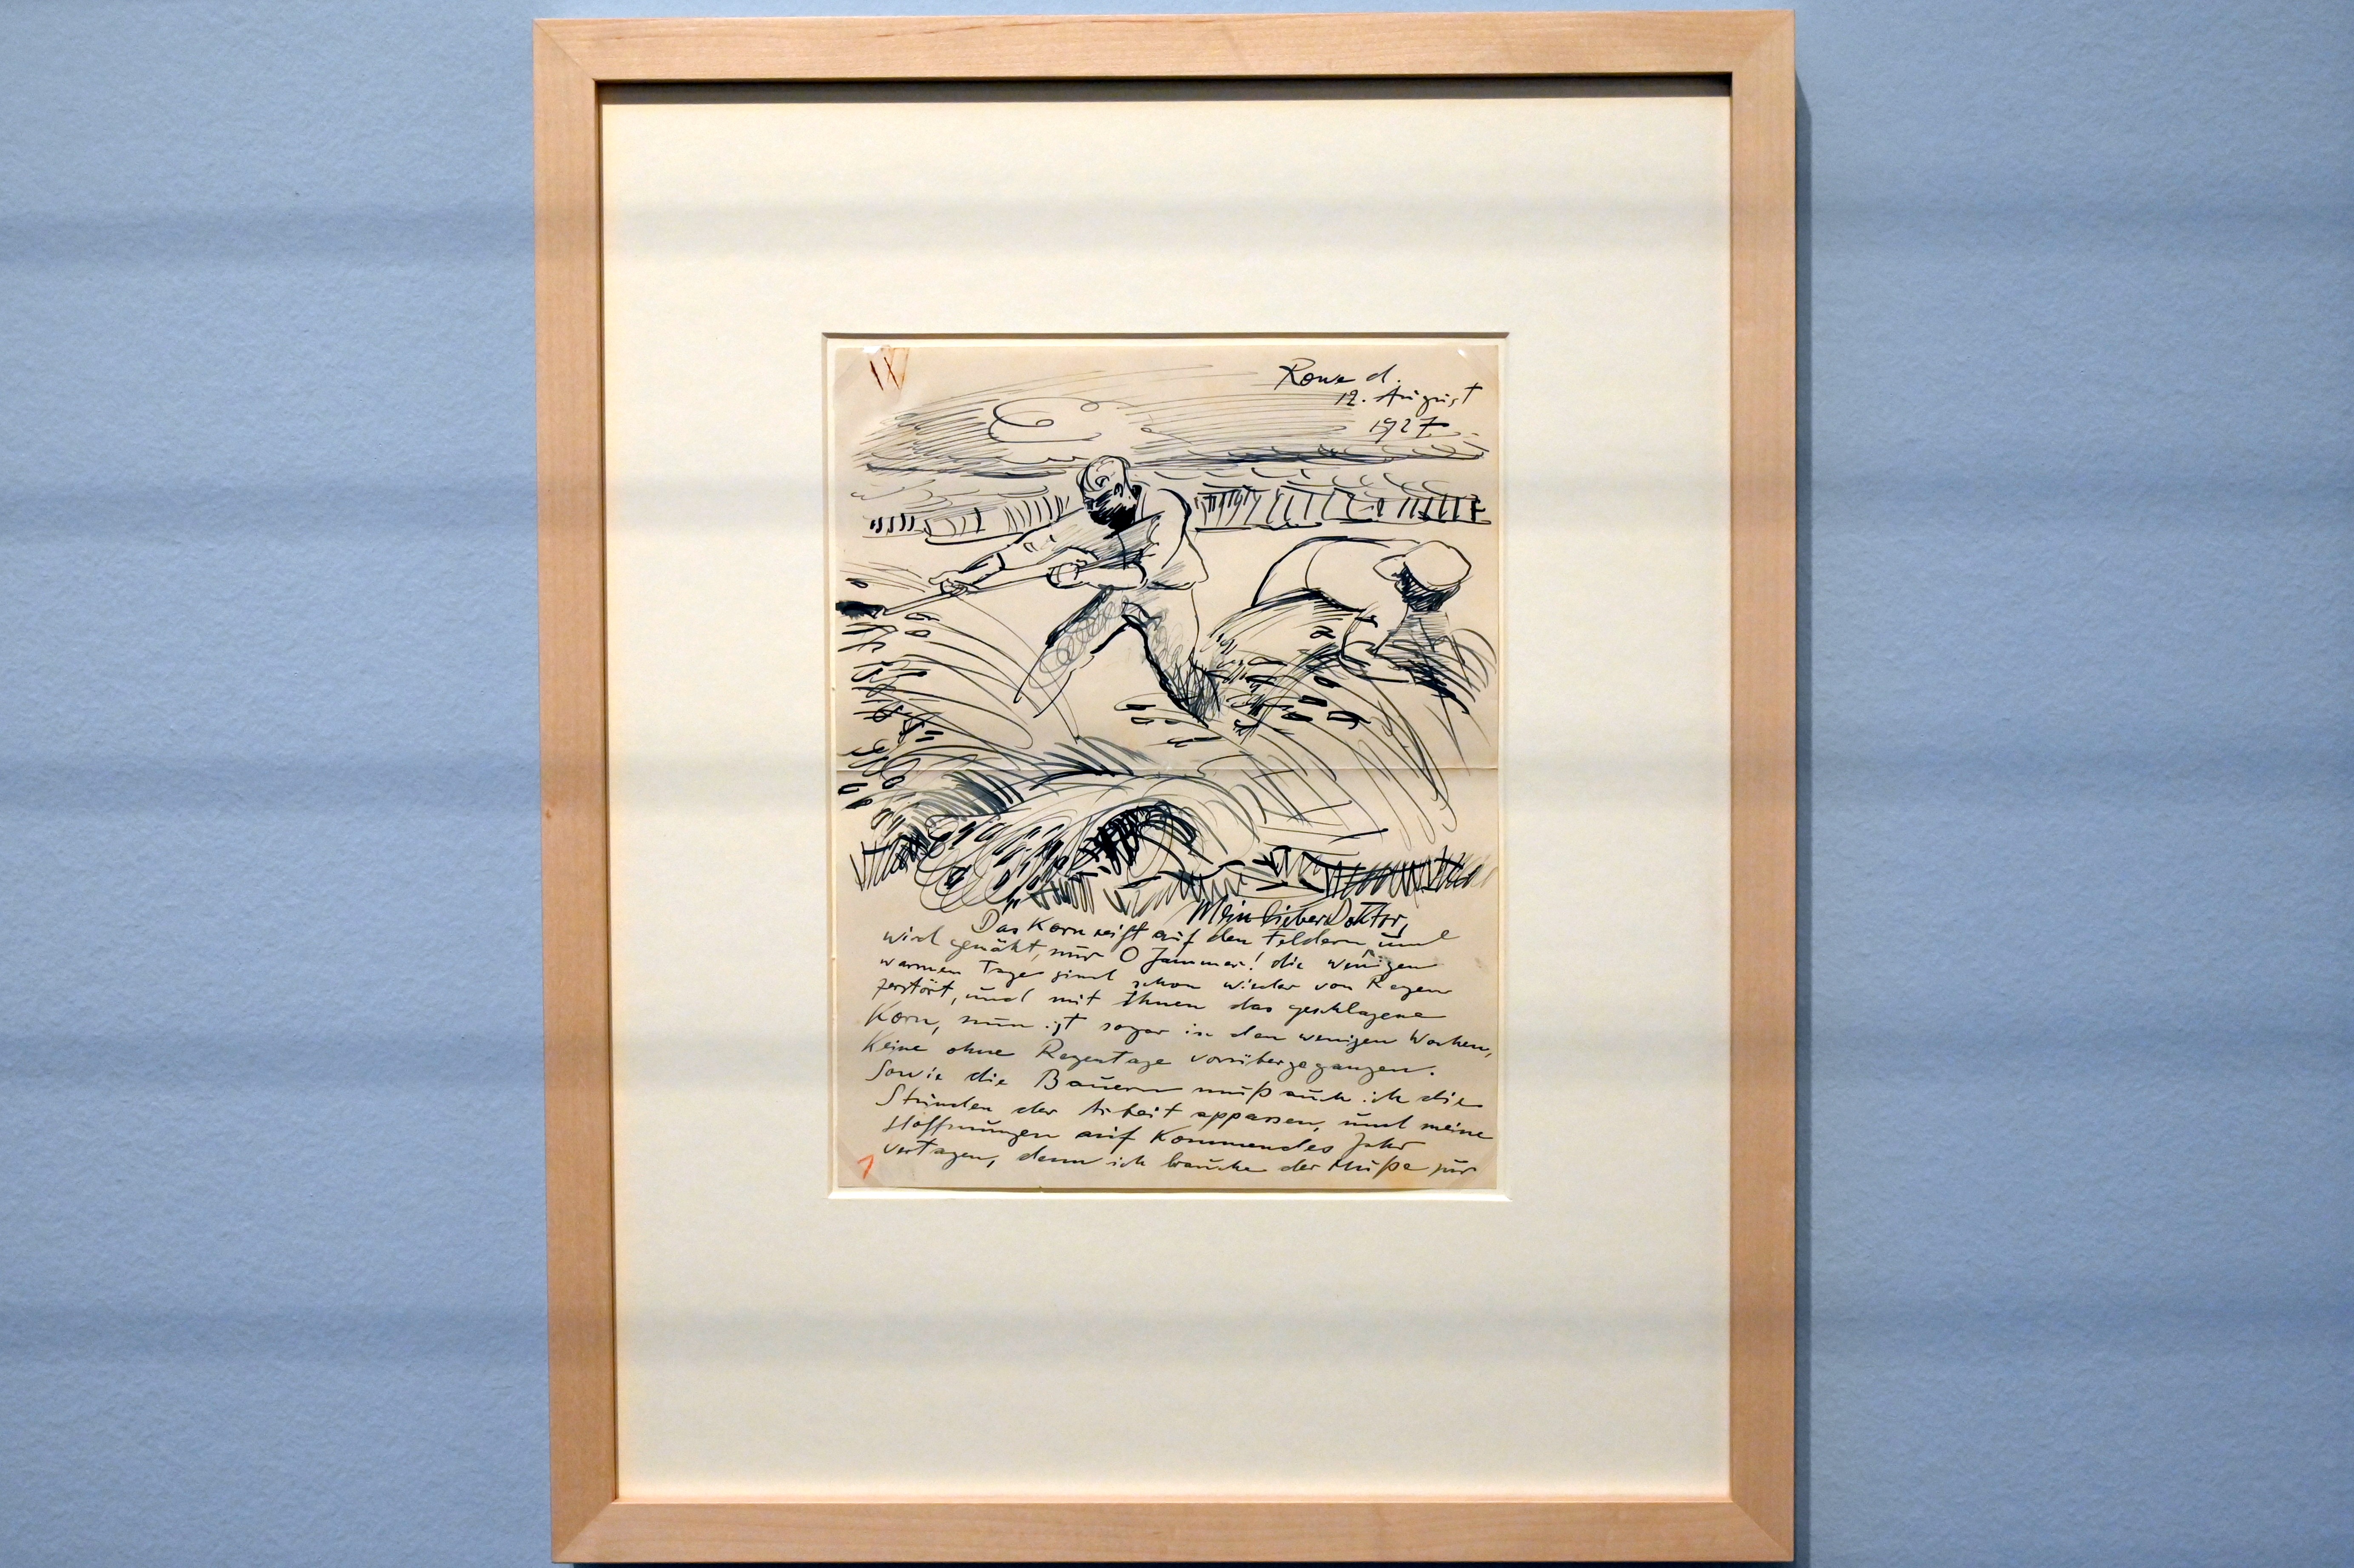 Rowe d.
12. August
1927
Mein lieber Doktor,
Das Korn reift auf den Feldern, und
wird gemäht, nur O Jammer! die wenigen
warmen Tage sind schon wieder von Regen
zerstört, und mit Ihnen das geschlagene
Korn, nun ist sogar in den wenigen Wochen,
Keine ohne Regentage vorübergegangen.
Sowie die Bauern muß auch ich die
Stunden der Arbeit appassen, und meine
Hoffnungen auf Kommendes Jahr
vertagen, denn ich brauche der Muße zur